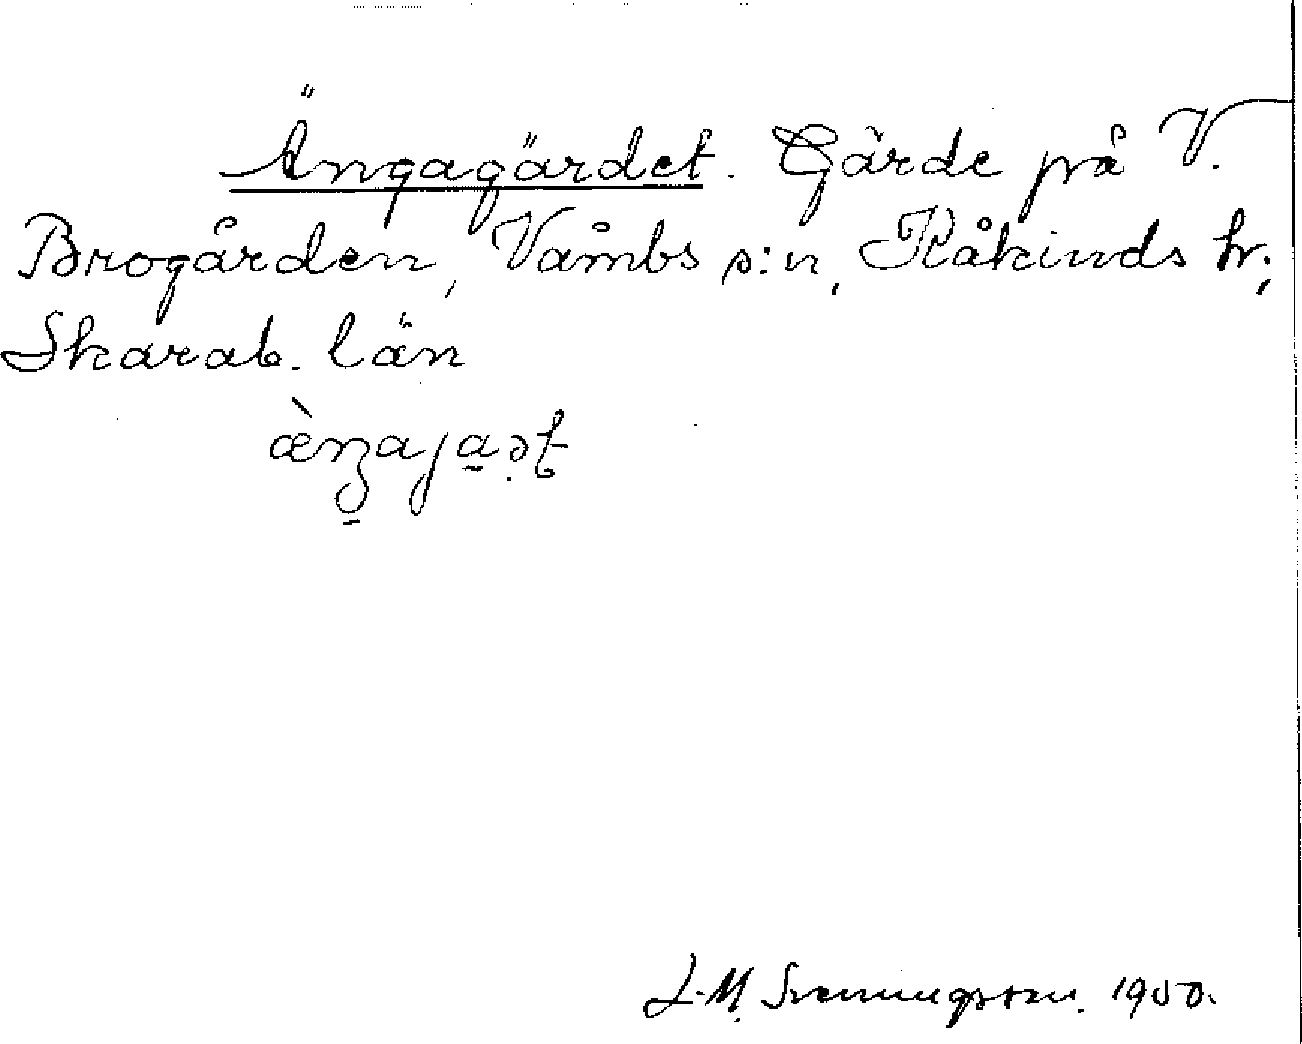 Ängagärdet. Gärde på V.
Brogården, Våmbs s:n, Kåkinds hr,
Skarab. län
æ̀ŋajaət
J. M. Svenningson. 1950.